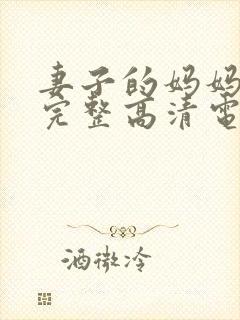 妻子的妈妈
完整高清电
酒微冷